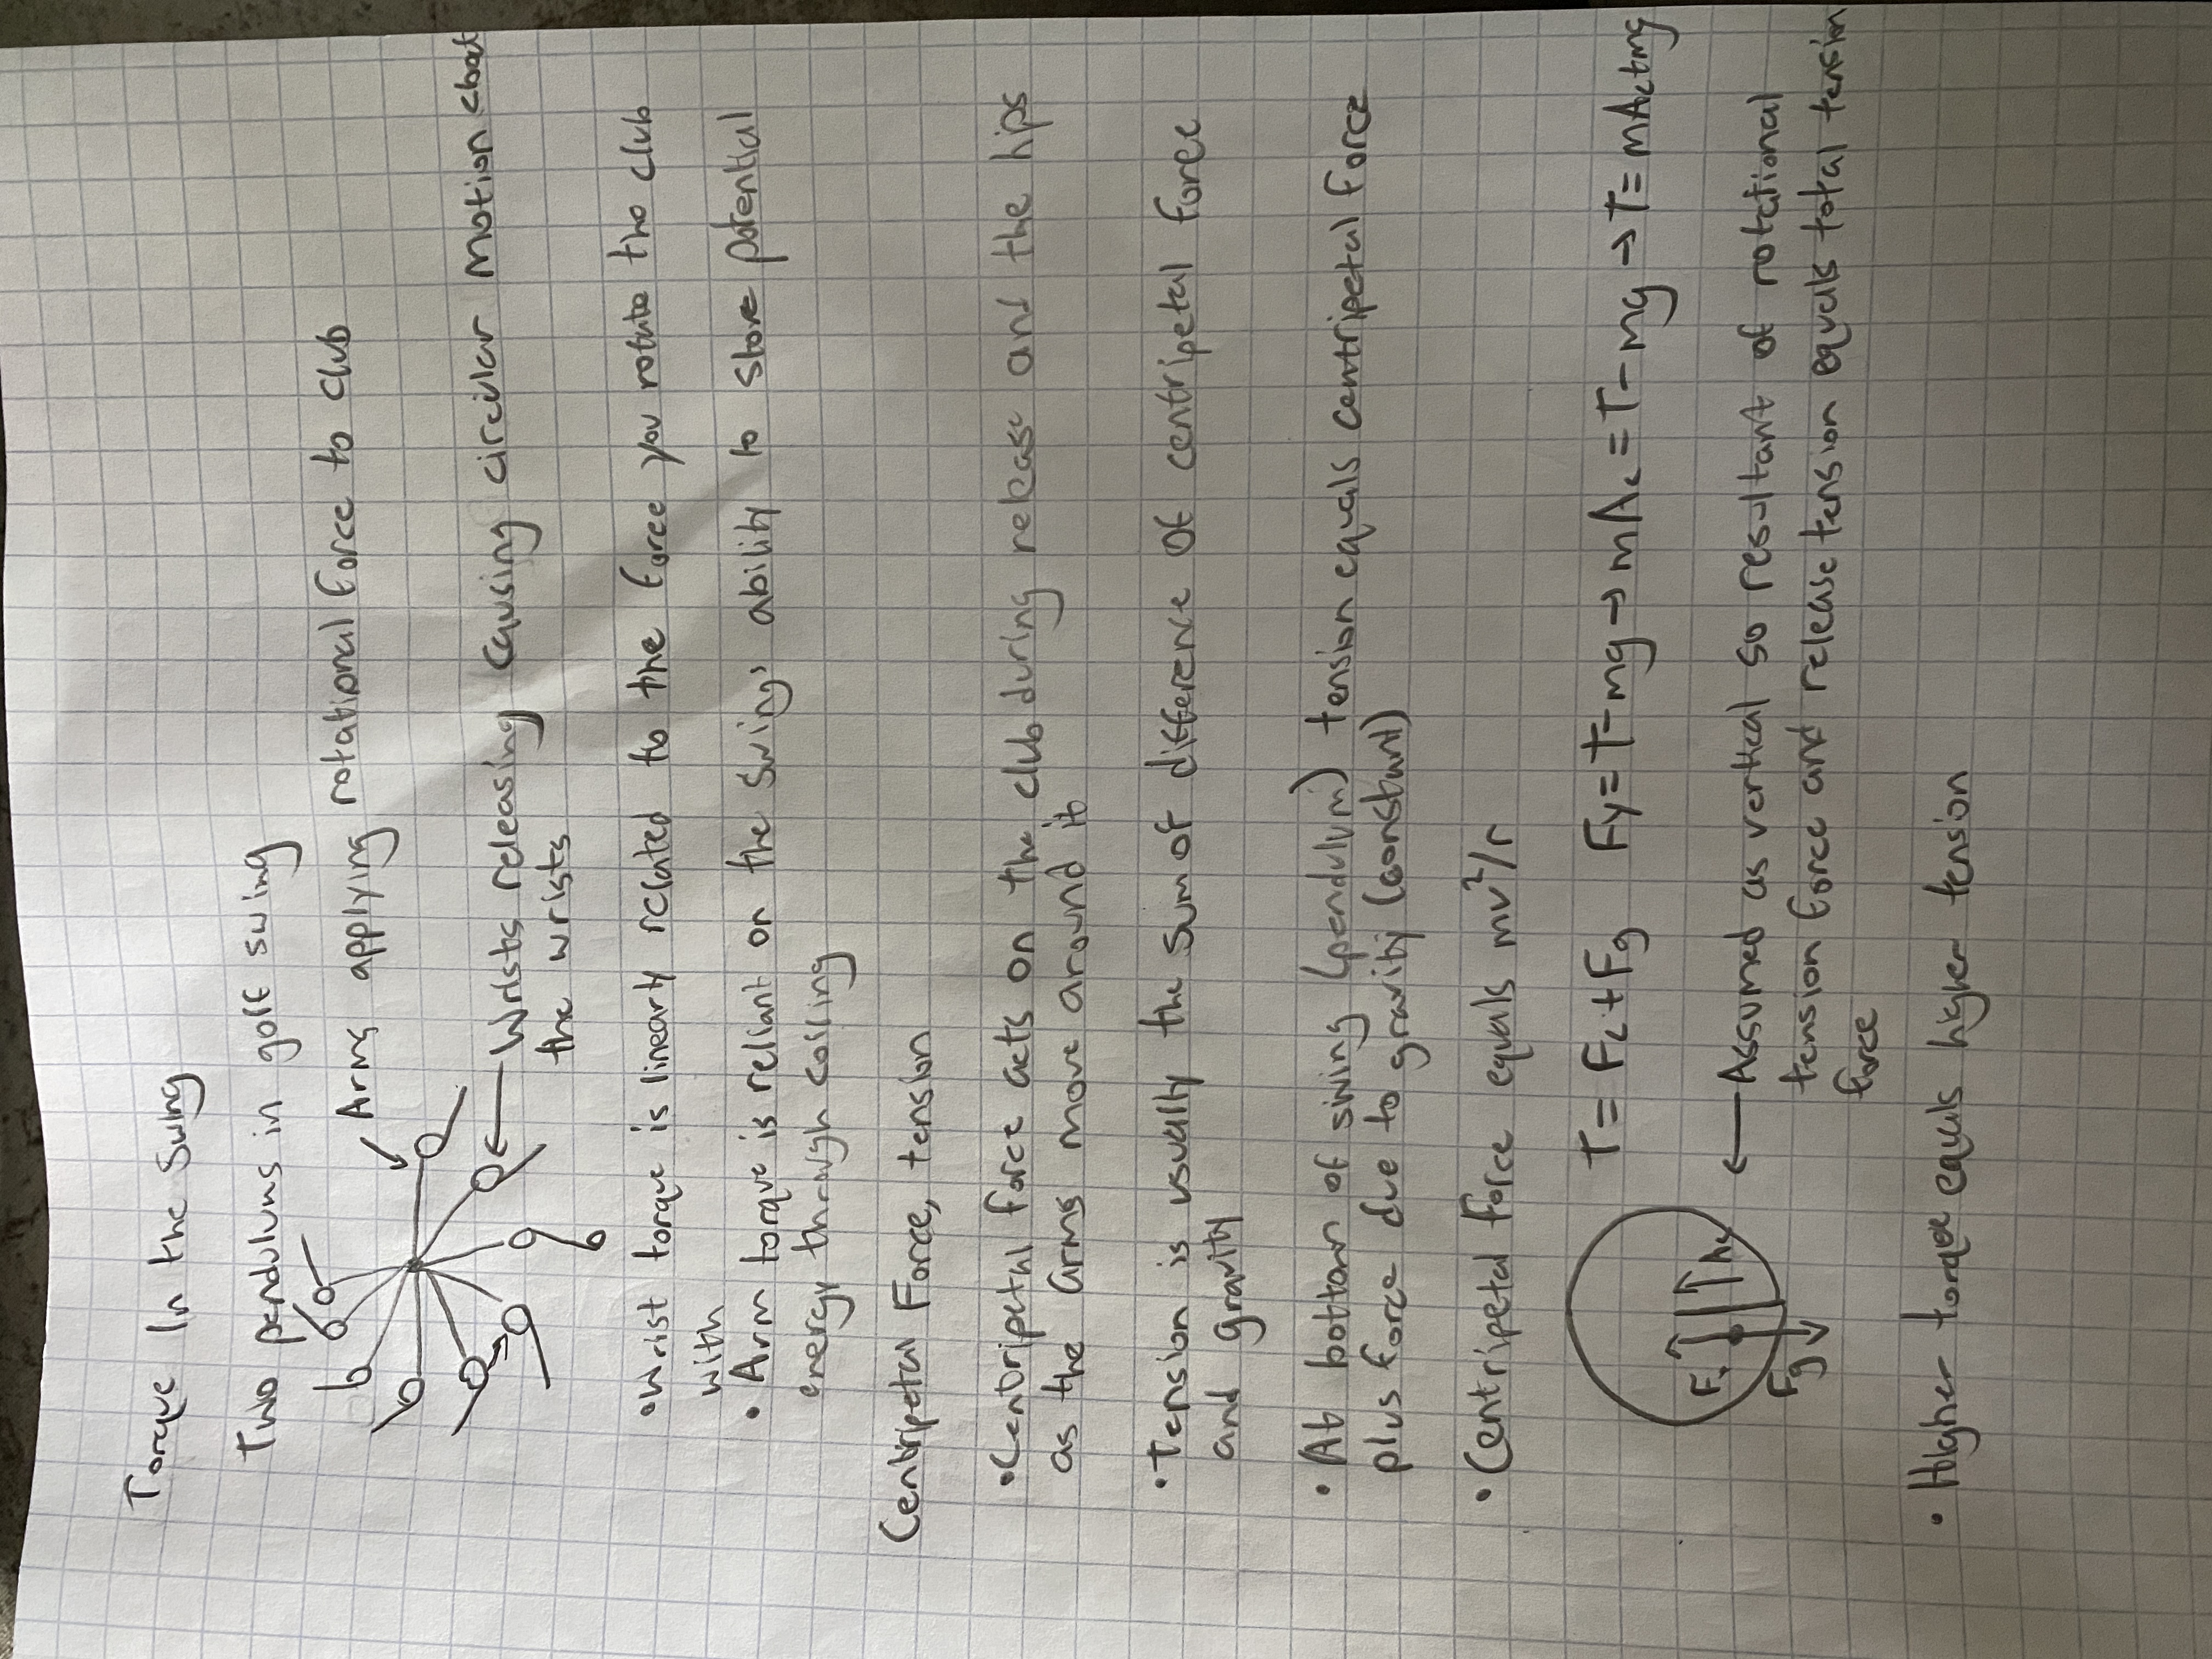 Torque In the Swing
Two pendulums in golf swing
Arms applying rotational force to club
Wrists releasing causing circular motion about
the wrists
•Wrist torque is linearly related to the force you rotate the club
with
• Arm torque is reliant on the swings ability to store potential
energy through coiling
Centripetal Force, tension
•Centripetal force acts on the club during release and the hips
as the arms move around it
•Tension is usually the sum of difference of centripetal force
and gravity
• At bottom of swing (pendulum) tension equals centripetal force
plus force due to gravity (constant)
• Centripetal force equals mv²/r
T = Fc + Fg Fy = T - mg → mAc = T - mg → T = mAc + mg
Ac
Fg
Assumed as vertical so resultant of rotational
tension force and release tension equals total tension
force
• Higher torque equals higher tension